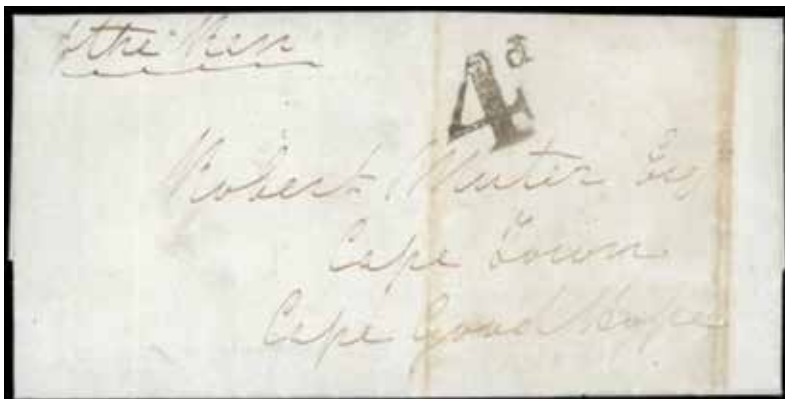 the
4d
Robert Muter Esq
Cape Town
Cape Good Hope